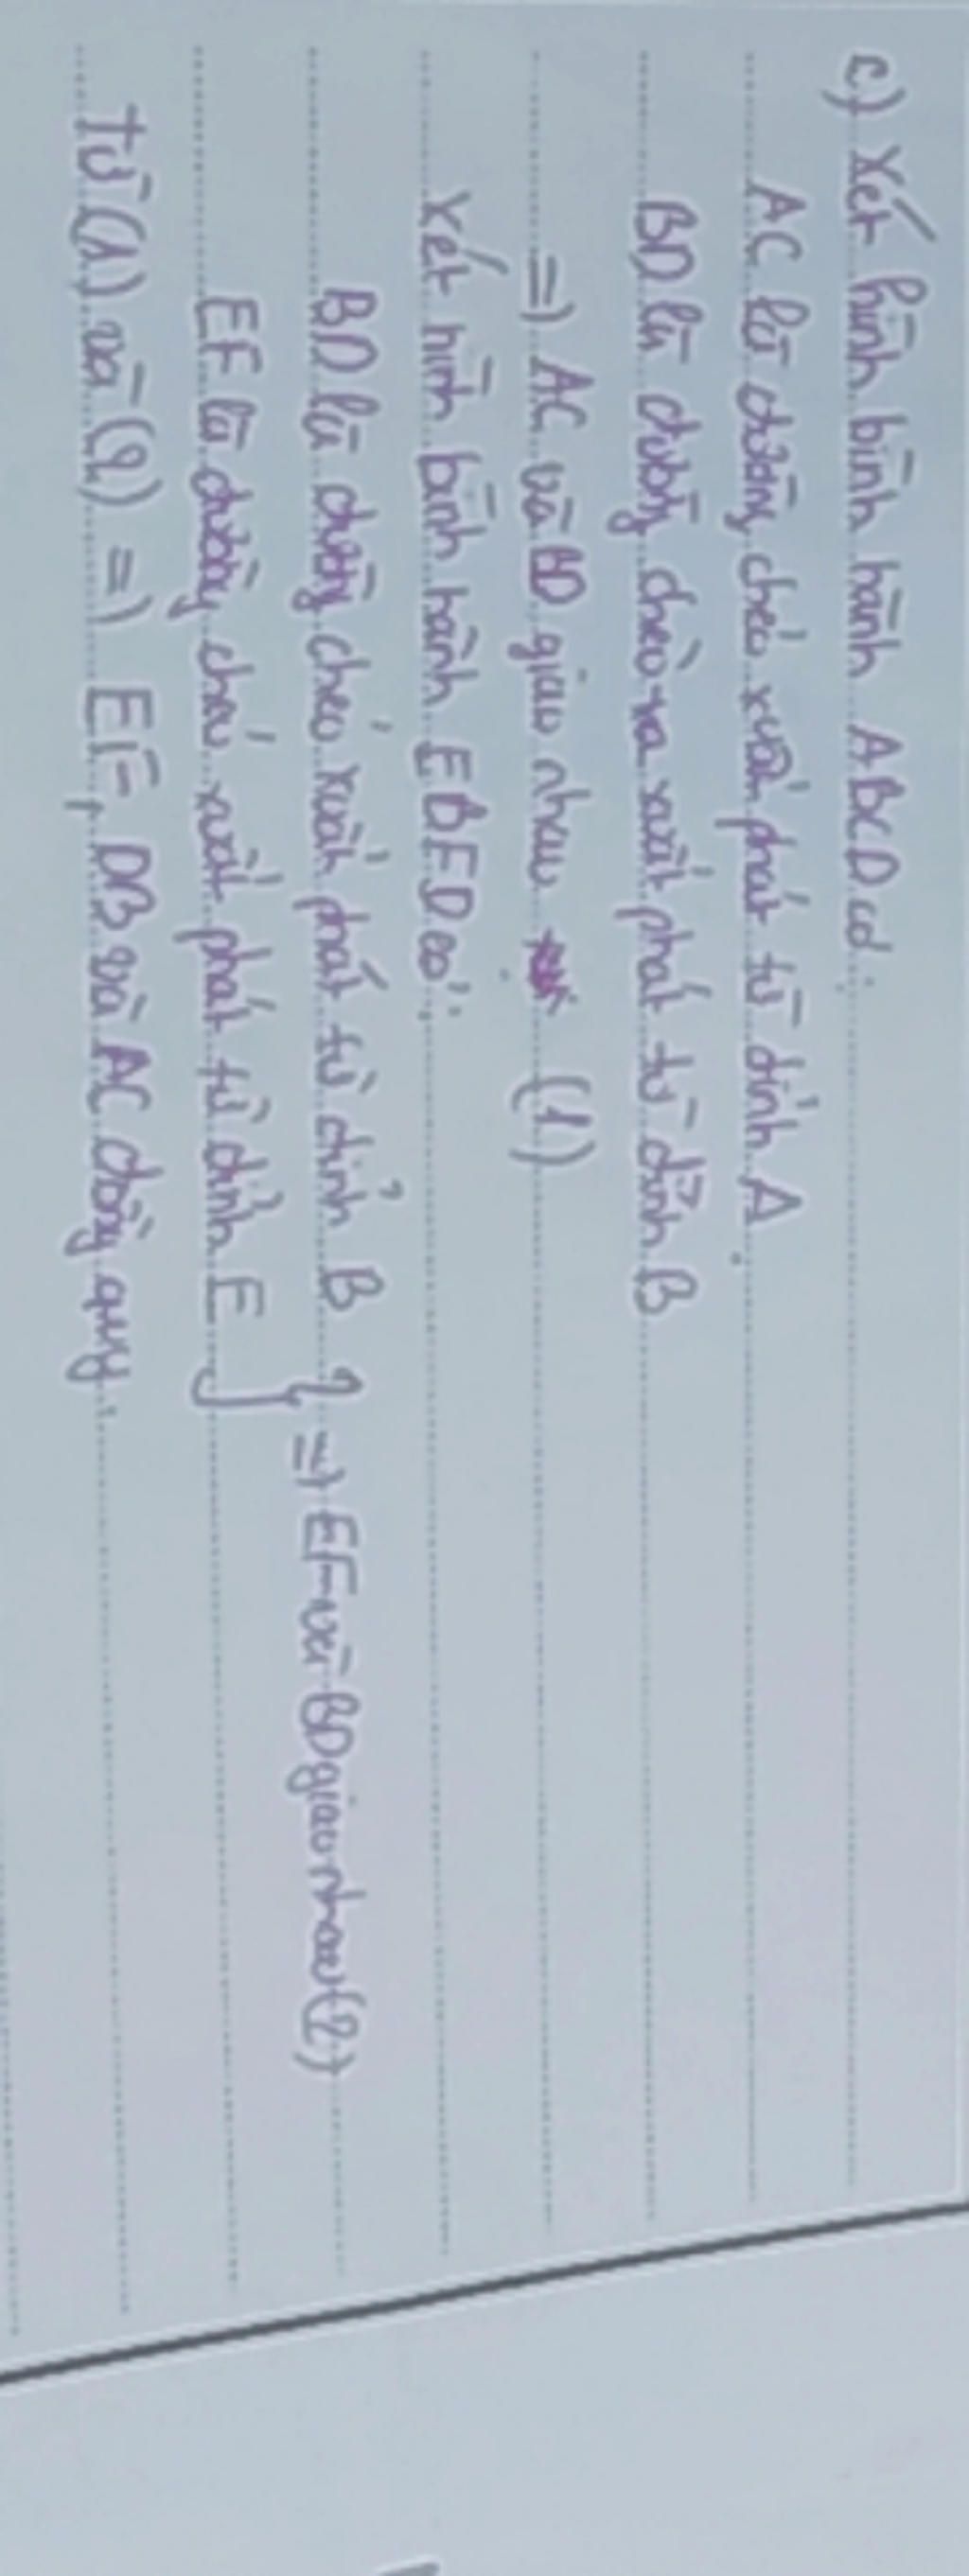 c) Xét hình bình hành ABCD có:
AC là đường chéo xuất phát từ đỉnh A
BD là đường chéo xuất phát từ đỉnh B
=) AC và BD giao nhau (1)
Xét hình bình hành EBFD có:
BD là đường chéo xuất phát từ đỉnh B } =) EF và BD giao nhau (2)
EF là đường chéo xuất phát từ đỉnh E
Từ (1) và (2) =) EF, DB và AC đồng quy.